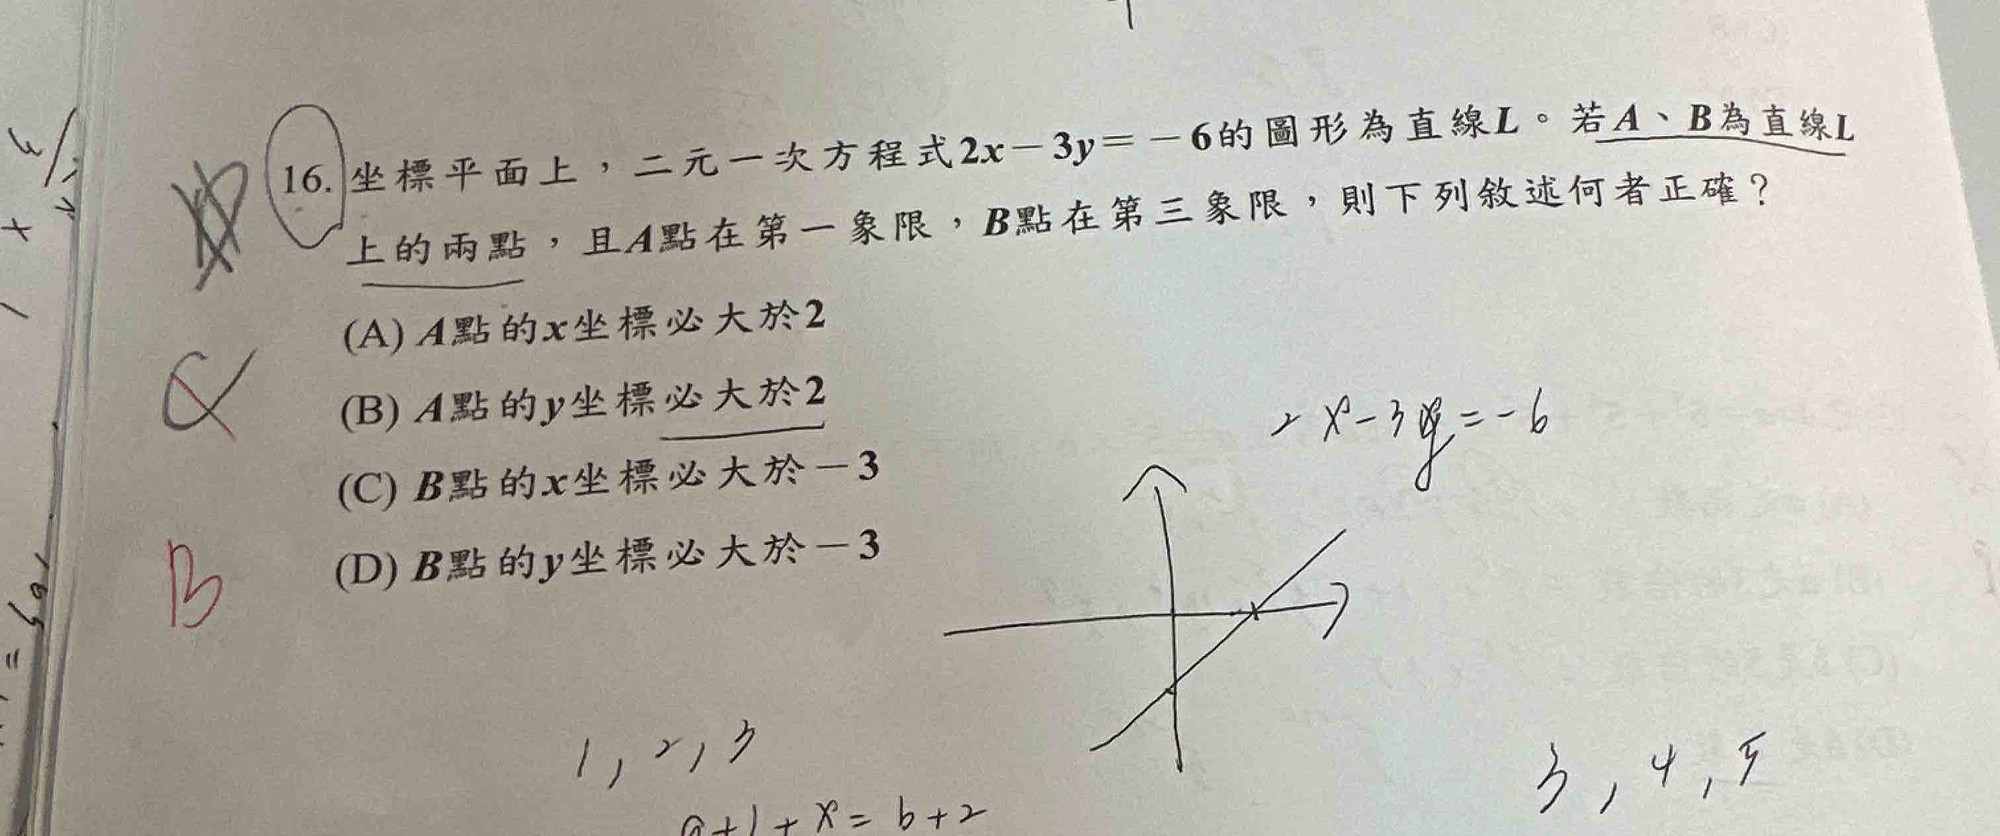 16. 坐標平面上，二元一次方程式2x－3y＝－6的圖形為直線L。若A、B為直線L
上的兩點，且A點在第一象限，B點在第三象限，則下列敘述何者正確？
(A) A點的x坐標必大於2
(B) A點的y坐標必大於2
(C) B點的x坐標必大於－3
(D) B點的y坐標必大於－3
C
B
2x-3y=-6
1,2,3
3,4,5
a+1+x=b+2